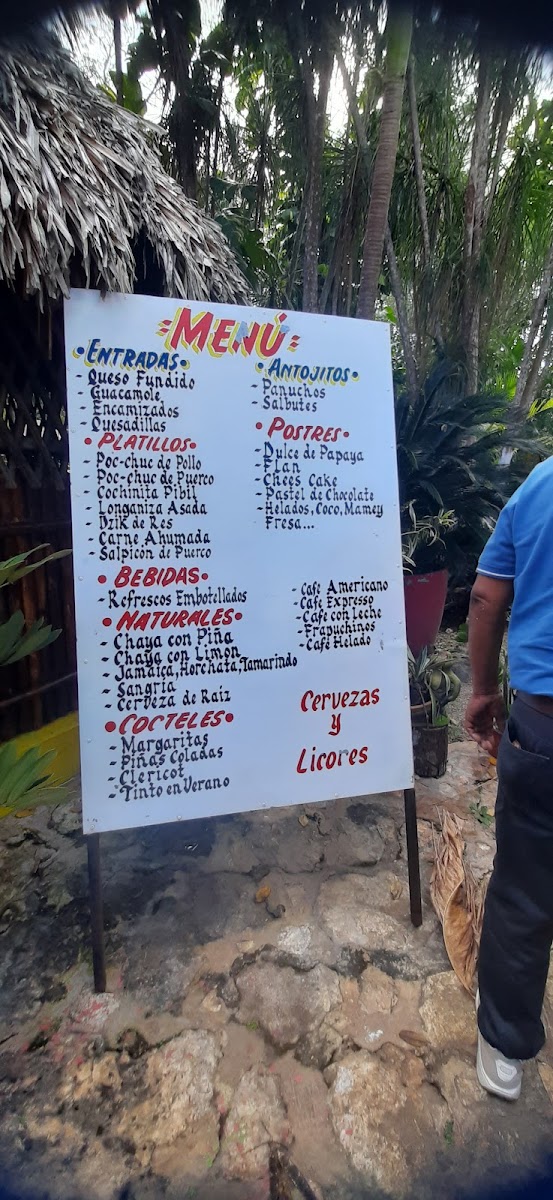 MENÚ
ENTRADAS
- Queso Fundido
- Guacamole
- Encamizados
- Quesadillas
PLATILLOS
- Poc-chuc de Pollo
- Poc-chuc de Puerco
- Cochinita Pibil
- Longaniza Asada
- Dzik de Res
- Carne Ahumada
- Salpicón de Puerco
BEBIDAS
- Refrescos Embotellados
NATURALES
- Chaya con Piña
- Chaya con Limon
- Jamaica, Horchata, Tamarindo
- Sangria
- Cerveza de Raíz
COCTELES
- Margaritas
- Piñas Coladas
- Clericot
- Tinto en Verano
ANTOJITOS
- Panuchos
- Salbutes
POSTRES
- Dulce de Papaya
- Flan
- Chees Cake
- Pastel de Chocolate
- Helados, Coco, Mamey
Fresa...
- Café Americano
- Café Expresso
- Café con Leche
- Frapuchinos
- Café Helado
Cervezas
y
Licores